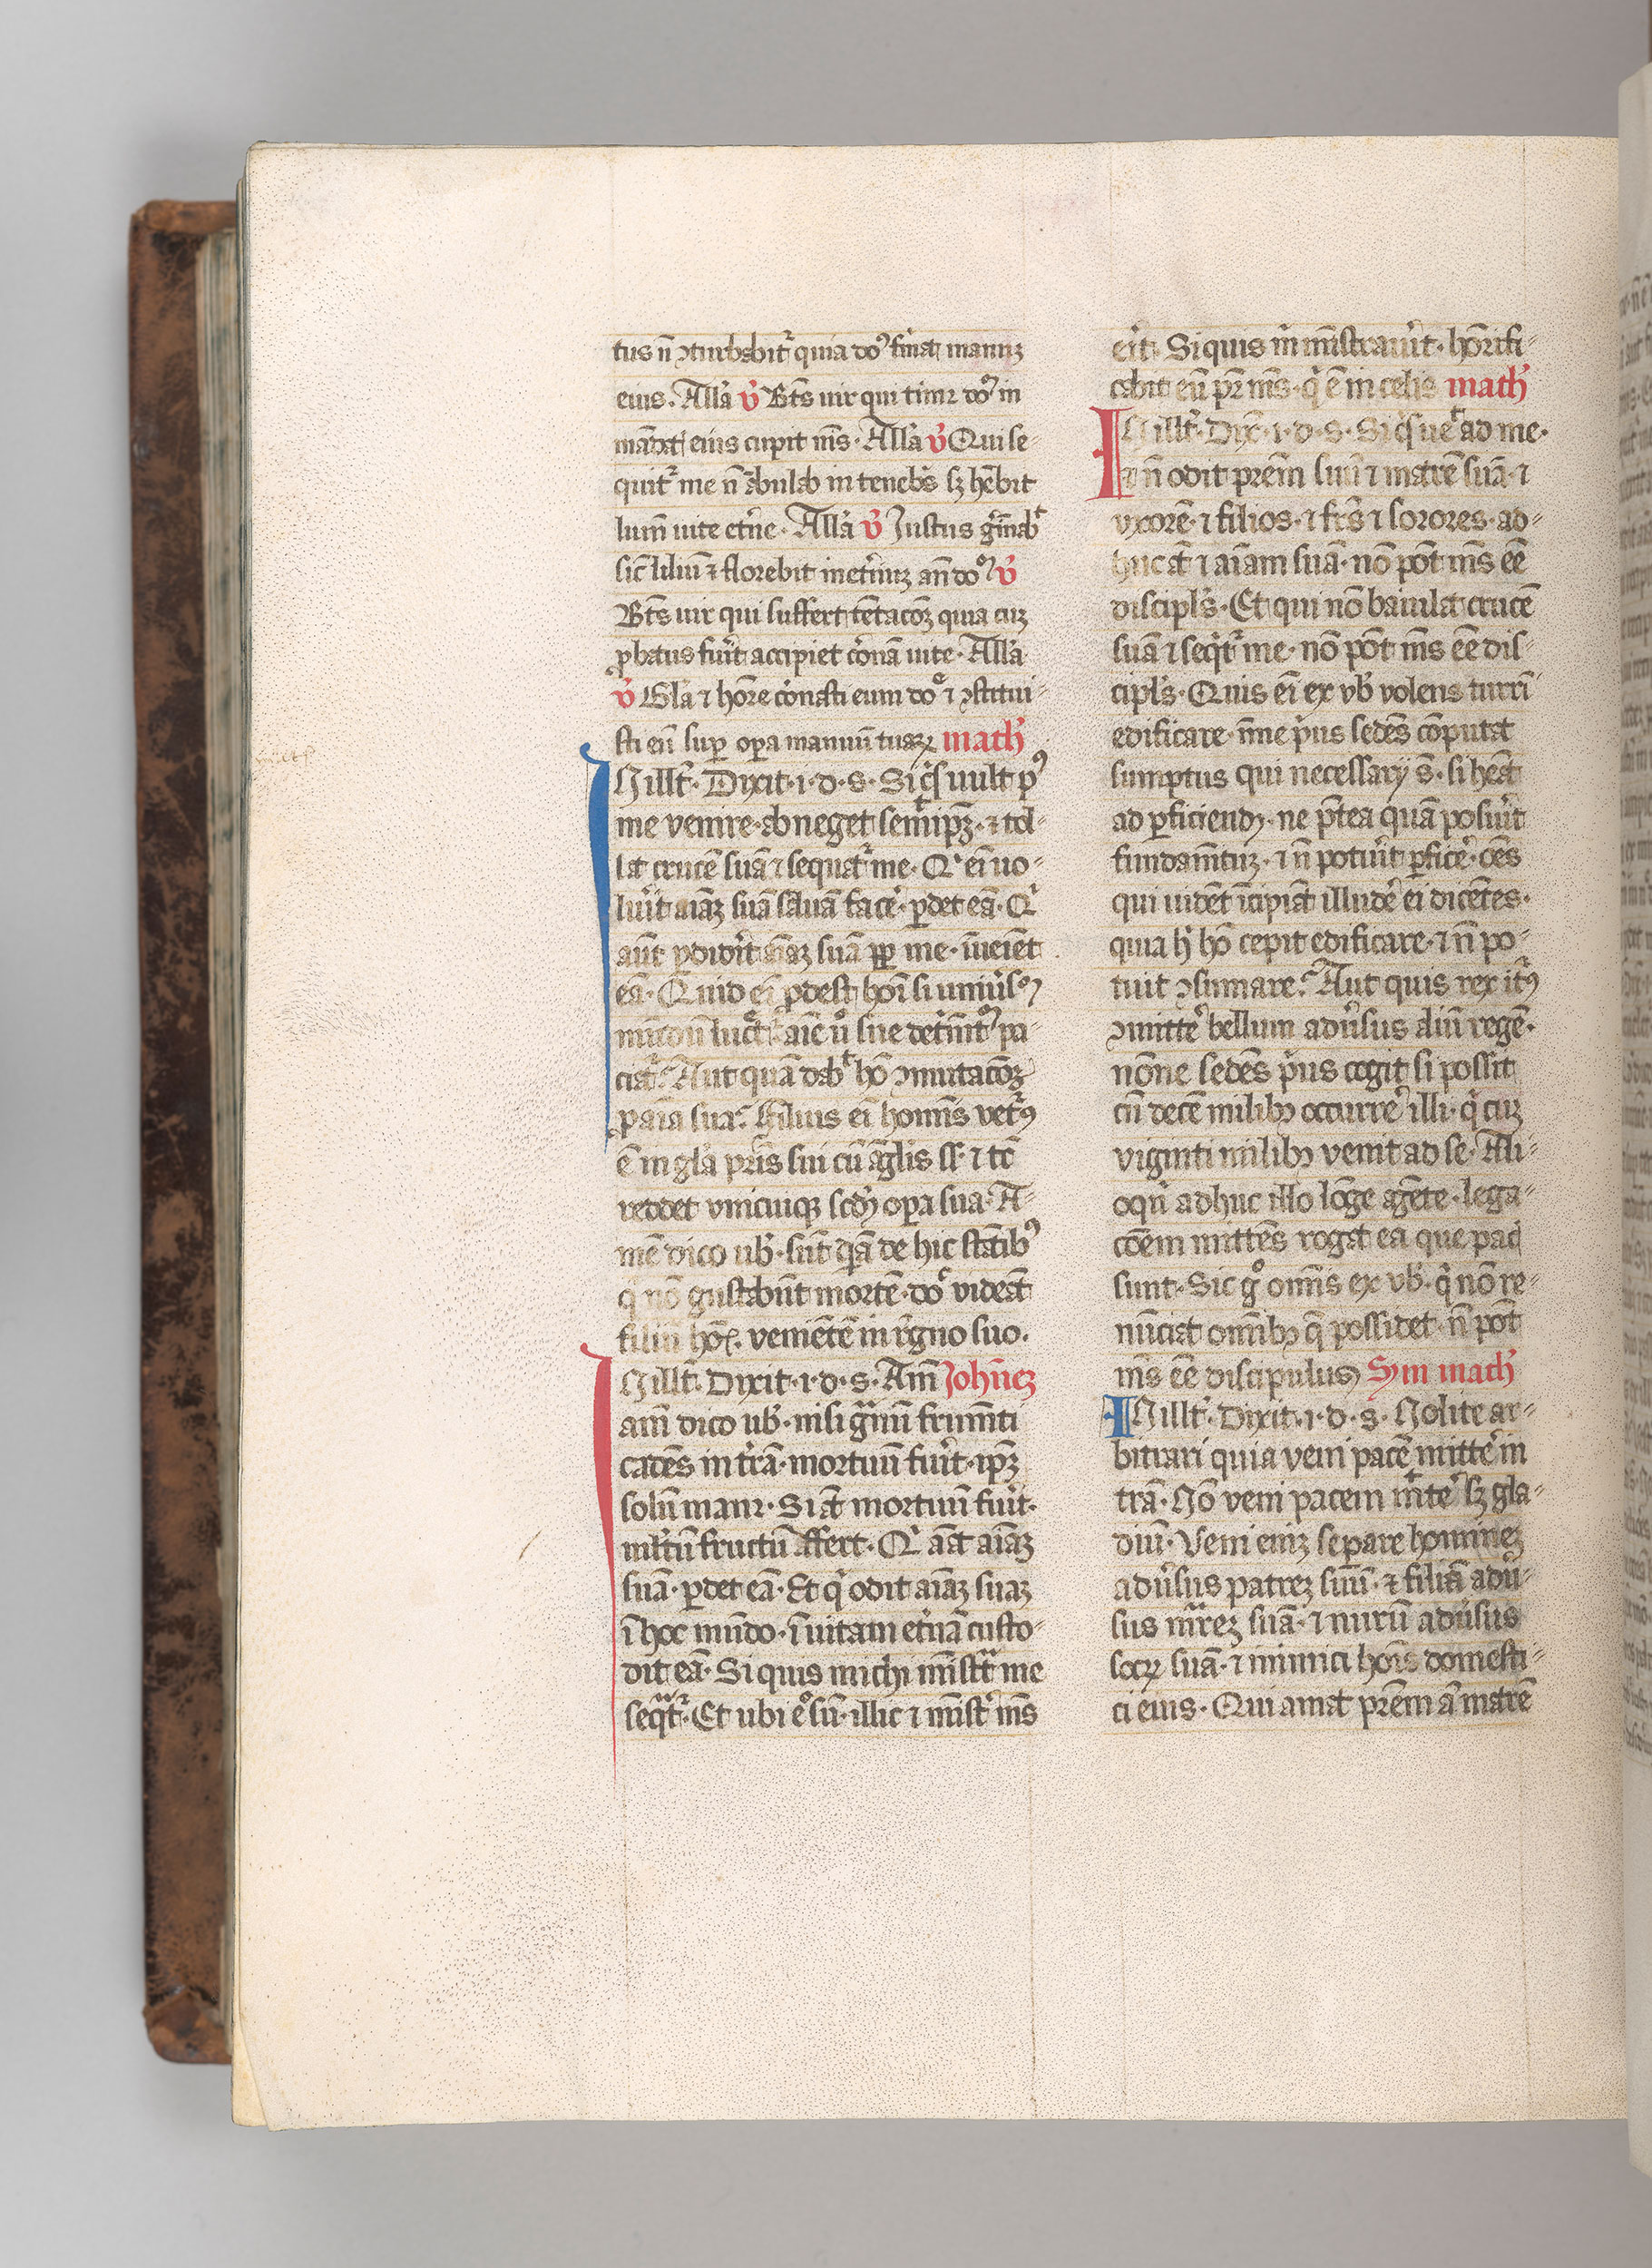 tus nō ꝯturbabit̉ quia do᷒ firmat manuz
eius. Alła v̉ Bt̄s uir qui timꝫ do᷒ in
mādatꝭ eius cupit nīs. Alła v̉ Qui se-
quit̉ me n̄ ābulab in tenebꝭ sꝫ hēbit
lum̄ uite et̉ne. Alła v̉ Justus g̉mīabᵗ
sic̄ liliū ⁊ florebit inet̉nuꝫ an̄ do᷒ v̉
Bt̄s uir qui suffert tētacōꝫ quia cuꝫ
ꝓbatus fuı̉t accipiet c̉onā uite. Alła
v̉ Gła ⁊ hōre c̉onasti eum dōe ⁊ ꝯstitui-
sti eū suꝑ oꝑa manuū tuaꝝ math̉
Nillt̉. Dixit. i. d. s. Siq̉s uult pꝰ
me venire. abneget semᵗipꝫ. ⁊ tol-
lat crucē suā ⁊ sequat̉ me. Q̉ ei uo-
luı̉t aīaꝫ suā saluā facē. ꝑdet eā. Q̉
aūt ꝑdidı̉t aīaꝫ suā ꝓp me. īueiet
eā. Quid ei ꝓdest hoı̄ si uniūsꝰ
mūdū luct̉. aīe ū sue det̉mt̄ꝰ pa-
ciat̉. Aut quā dabᵗ hō ꝯmutacōꝫ
ꝓ aīa sua. Filius ei homīs vet̉ꝰ
ē in gła pr̄is sui cū āglis ss ⁊ tc̄
reddet vnicuiqꝫ scd̄ꝫ oꝑa sua. A-
mē dico ub̉. sūt q̄dā de hic stātibꝰ
q̉ nō gustabūt mortē. dōc videāt
filiū hoīs. venietē in r̄gno suo.
Nillt̉. Dixit. i. d. s. Am̄ John̄eꝫ
am̄ dico ub̉. nisi gᵃnū frumēti
cadēs in t̉rā. mortuū fuı̉t. ipꝫ
solū manꝫ. Si āt mortuū fuı̉t.
mlt̄ū fructū affert. Q̉ amat aīaꝫ
suā. ꝑdet eā. Et q̉ odit aīaꝫ suaꝫ
ī hoc mūdo. ī uitam et̉nā custo-
dit eā. Si quis michi mīstᵃt me
seqᵃt̉. Et ubi eᵒ sū. illic ⁊ mīst̉ mīs
eı̉t. Si quis m̉ mīstrauı̉t. hōrifi-
cabit eū pr̄ mīs. q̉ ē in celis math̉
INillt̉. Dix̄. i. d. s. Si q̉s ueᵗ ad me.
⁊ n̄ odit pr̄em suū ⁊ matrē suā. ⁊
vxorē. ⁊ filios. ⁊ fr̄s ⁊ sorores. ad-
huc āt ⁊ aīam suā. nō pōt mīs eē
discipls̄. Et qui nō baiulat crucē
suā ⁊ seq̉t̉ me. nō pōt mīs eē dis-
cipls̄. Quis ei ex vb̉ volens turrı̄
edificare. nn̄e p̉us sedēs cōputat
sumptus qui necessarij s̄. si heāt
ad ꝑficiendꝫ. ne p̄tea quā posuı̉t
fundamētuꝫ. ⁊ n̄ potuı̉t ꝑficē. oēs
qui uidēt īcipiāt illudē ei dicētes.
quia h̉ hō cepit edificare. ⁊ n̄ po-
tuit ꝯsumare. Aut quis rex it̉ꝰ
ꝯmitt̉e bellum adūsus aliū regē.
nōne sedēs p̉us cogit si possit
cū decē milibꝰ occurre illi. q̉ cuꝫ
viginti milibꝰ venit ad se. Ali-
oqn̄ adhuc illo lōge agēte. lega-
cōem mittēs rogat ea que paci
sunt. Sic gᵒ omīs ex vb̉. q̉ nō re-
nūciat omībꝰ q̄ possidet. n̄ pōt
mīs eē discipulus Sym math̉
INillt̉. Dixit. i. d. s. Nolite ar-
bitrari quia veni pacē mitte in
trā. Nō veni pacem mᵗtē sꝫ gla-
diū. Veni eniꝫ seꝑare hominēꝫ
adūsus patreꝫ suū. ⁊ filiā adū-
sus mr̄eꝫ suā. ⁊ nurū adūsus
socꝝ suā. ⁊ inimici hoīs domesti-
ci eius. Qui amat pr̄em a̅ matrē